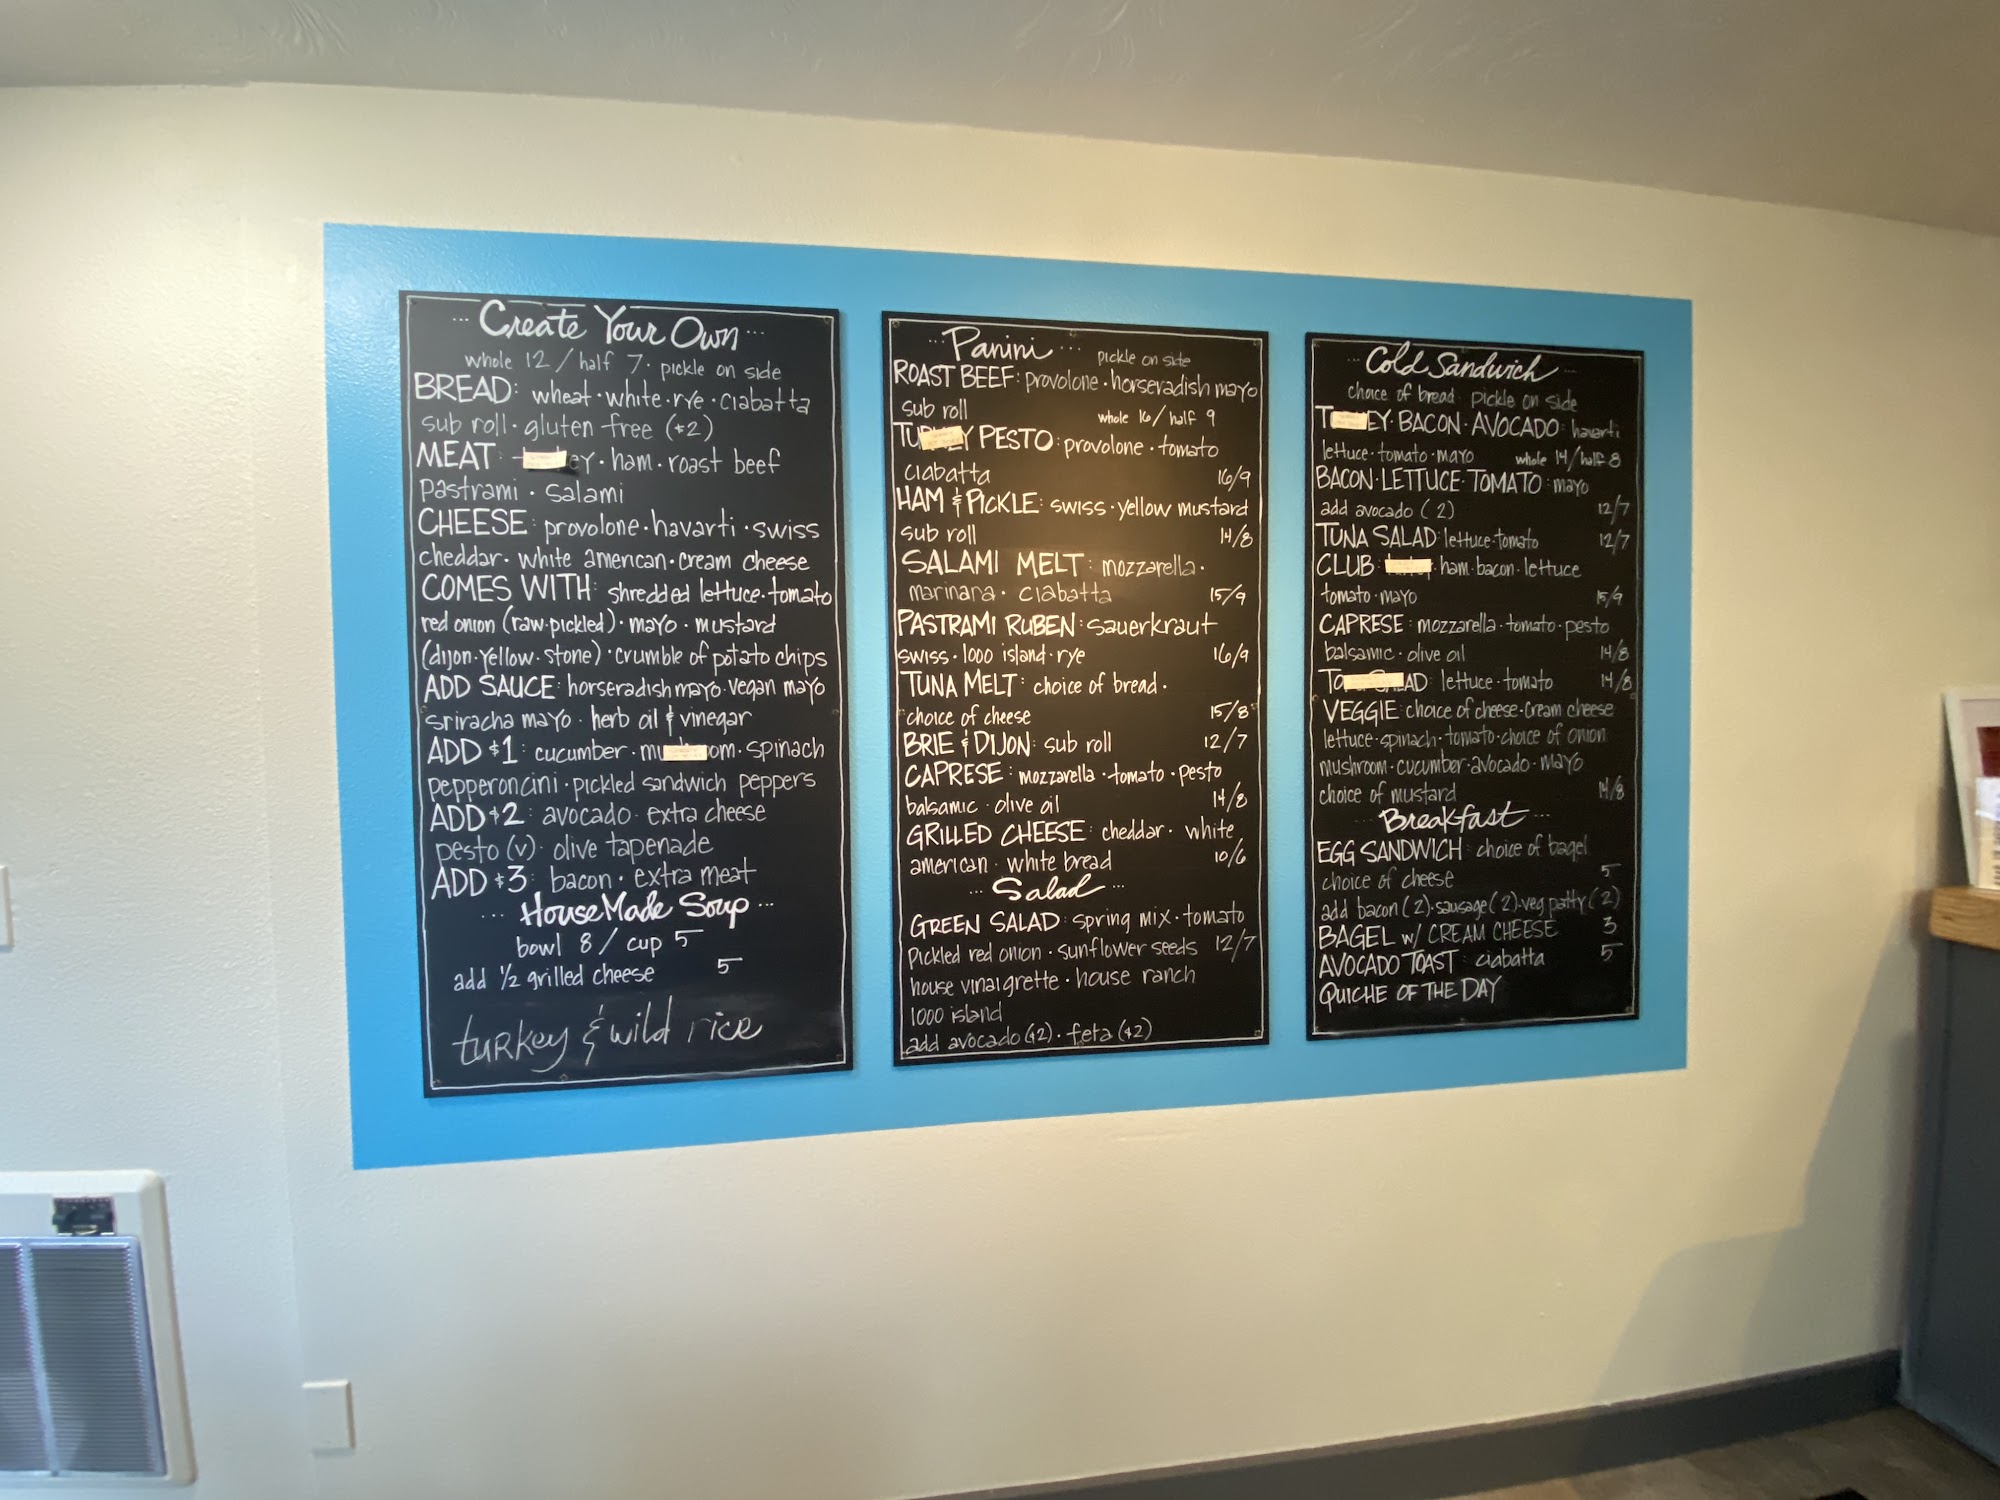 Create Your Own
whole 12 / half 7 · pickle on side
BREAD: wheat · white · rye · ciabatta
sub roll · gluten free ($2)
MEAT: ey · ham · roast beef
pastrami · salami
CHEESE: provolone · havarti · swiss
cheddar · white american · cream cheese
COMES WITH: shredded lettuce · tomato
red onion (raw · pickled) · mayo · mustard
(dijon · yellow · stone) · crumble of potato chips
ADD SAUCE: horseradish mayo · vegan mayo
sriracha mayo · herb oil & vinegar
ADD $1: cucumber · mu om · spinach
pepperoncini · pickled sandwich peppers
ADD $2: avocado · extra cheese
pesto (v) · olive tapenade
ADD $3: bacon · extra meat
HouseMade Soup
bowl 8 / cup 5
add ½ grilled cheese 5
turkey & wild rice
Panini
pickle on side
ROAST BEEF: provolone · horseradish mayo
sub roll whole 16 / half 9
TU Y PESTO: provolone · tomato
ciabatta 16/9
HAM & PICKLE: swiss · yellow mustard
sub roll 14/8
SALAMI MELT: mozzarella ·
marinara · ciabatta 15/9
PASTRAMI RUBEN: sauerkraut
swiss · 1000 island · rye 16/9
TUNA MELT: choice of bread ·
choice of cheese 15/8
BRIE & DIJON: sub roll 12/7
CAPRESE: mozzarella · tomato · pesto
balsamic · olive oil 14/8
GRILLED CHEESE: cheddar · white
american · white bread 10/6
Salad
GREEN SALAD: spring mix · tomato
Pickled red onion · sunflower seeds 12/7
house vinaigrette · house ranch
1000 island
add avocado ($2) · feta ($2)
Cold Sandwich
choice of bread · pickle on side
T EY · BACON · AVOCADO: havarti
lettuce · tomato · mayo whole 14 / half 8
BACON · LETTUCE · TOMATO: mayo
add avocado (2) 12/7
TUNA SALAD: lettuce · tomato 12/7
CLUB: ham · bacon · lettuce
tomato · mayo 15/9
CAPRESE: mozzarella · tomato · pesto
balsamic · olive oil 14/8
AD: lettuce · tomato 14/8
VEGGIE: choice of cheese · cream cheese
lettuce · spinach · tomato · choice of onion
mushroom · cucumber · avocado · mayo
choice of mustard 14/8
Breakfast
EGG SANDWICH: choice of bagel
choice of cheese 5
add bacon (2) · sausage (2) · veg patty (2)
BAGEL w/ CREAM CHEESE 3
AVOCADO TOAST: ciabatta 5
QUICHE OF THE DAY